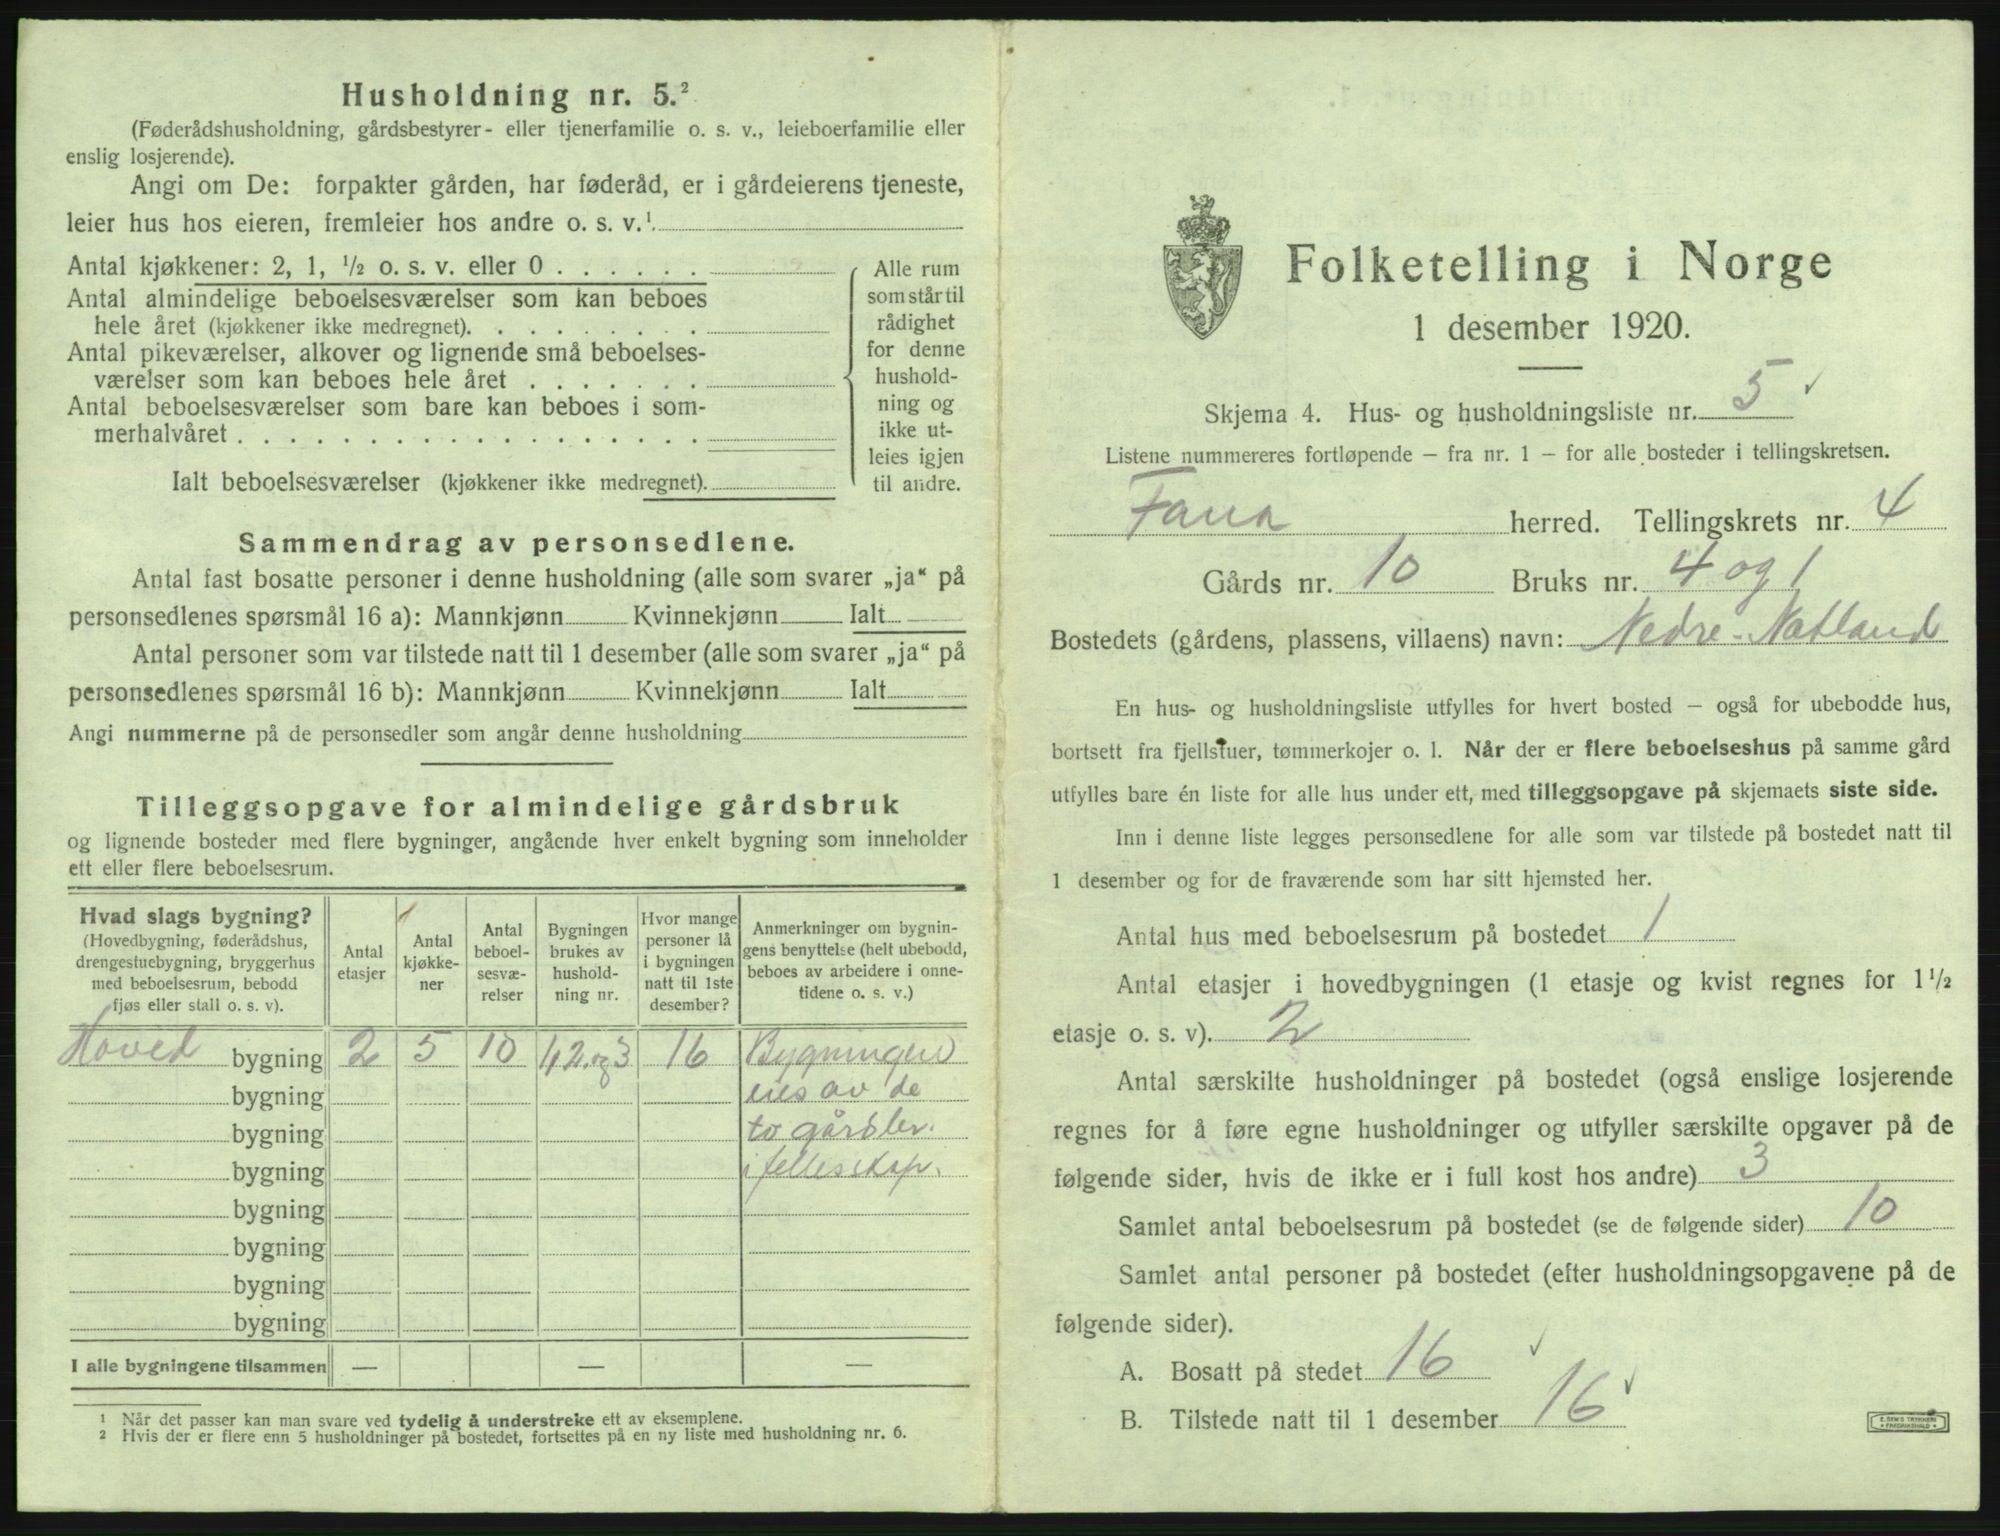 Husholdning nr. 5.²
(Føderådshusholdning, gårdsbestyrer- eller tjenerfamilie o. s. v., leieboerfamilie eller
enslig losjerende).
Angi om De: forpakter gården, har føderåd, er i gårdeierens tjeneste,
leier hus hos eieren, fremleier hos andre o. s. v.¹
Antal kjøkkener: 2, 1, ½ o. s. v. eller 0 . . . . . .
Antal almindelige beboelsesværelser som kan beboes
hele året (kjøkkener ikke medregnet). . . . . . . . .
Antal pikeværelser, alkover og lignende små beboelses-
værelser som kan beboes hele året . . . . . . .
Antal beboelsesværelser som bare kan beboes i som-
merhalvåret . . . . . . . . . . . . . . . . . .
Ialt beboelsesværelser (kjøkkener ikke medregnet).
Alle rum
som står til
rådighet
for denne
hushold-
ning og
ikke ut-
leies igjen
til andre.
Sammendrag av personsedlene.
Antal fast bosatte personer i denne husholdning (alle som svarer „ja“ på
personsedlenes spørsmål 16 a): Mannkjønn Kvinnekjønn Ialt
Antal personer som var tilstede natt til 1 desember (alle som svarer „ja“ på
personsedlenes spørsmål 16 b): Mannkjønn Kvinnekjønn Ialt
Angi nummerne på de personsedler som angår denne husholdning
Tilleggsopgave for almindelige gårdsbruk
og lignende bosteder med flere bygninger, angående hver enkelt bygning som inneholder
ett eller flere beboelsesrum.
Hvad slags bygning?
(Hovedbygning, føderådshus,
drengestuebygning, bryggerhus
med beboelsesrum, bebodd
fjøs eller stall o. s. v).
Antal
etasjer
Antal
kjøkke-
ner
Antal
beboel-
sesvæ-
relser
Bygningen
brukes av
hushold-
ning nr.
Hvor mange
personer lå
i bygningen
natt til 1ste
desember?
Anmerkninger om bygnin-
gens benyttelse (helt ubebodd,
beboes av arbeidere i onne-
tidene o. s. v.)
Hoved bygning 2 5 10 1,2.og3 16 Bygningen
bygning eies av de
bygning to gårdbr.
bygning i fellesskap.
bygning
bygning
bygning
bygning
I alle bygningene tilsammen — — —
¹ Når det passer kan man svare ved tydelig å understreke ett av eksemplene.
² Hvis der er flere enn 5 husholdninger på bostedet, fortsettes på en ny liste med husholdning nr. 6.
Folketelling i Norge
1 desember 1920.
Skjema 4. Hus- og husholdningsliste nr. 5 ✓
Listene nummereres fortløpende – fra nr. 1 – for alle bosteder i tellingskretsen.
Fana herred. Tellingskrets nr. 4
Gårds nr. 10 Bruks nr. 4 og 1
Bostedets (gårdens, plassens, villaens) navn: Nedre-Natland
En hus- og husholdningsliste utfylles for hvert bosted – også for ubebodde hus,
bortsett fra fjellstuer, tømmerkojer o. l. Når der er flere beboelseshus på samme gård
utfylles bare én liste for alle hus under ett, med tilleggsopgave på skjemaets siste side.
Inn i denne liste legges personsedlene for alle som var tilstede på bostedet natt til
1 desember og for de fraværende som har sitt hjemsted her.
Antal hus med beboelsesrum på bostedet 1
Antal etasjer i hovedbygningen (1 etasje og kvist regnes for 1½
etasje o. s. v). 2
Antal særskilte husholdninger på bostedet (også enslige losjerende
regnes for å føre egne husholdninger og utfyller særskilte opgaver på de
følgende sider, hvis de ikke er i full kost hos andre) 3
Samlet antal beboelsesrum på bostedet (se de følgende sider) 10
Samlet antal personer på bostedet (efter husholdningsopgavene på de
følgende sider).
A. Bosatt på stedet 16 ✓
B. Tilstede natt til 1 desember 16 ✓
E. SEM'S TRYKKERI
FREDRIKSHALD